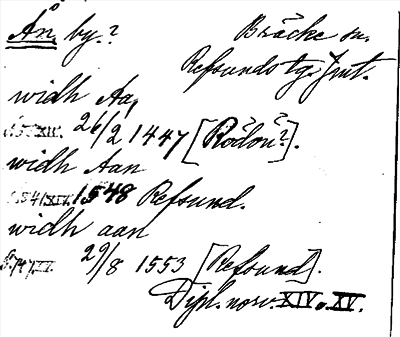 Ån, by? Bräcke sn.
Refsunds tg. Jmt.
widh Aa,
26/2 1447 [Rödön?].
widh Aan
S.541.XIV. 1548 Refsund.
widh aan
29/8 1553 [Refsund].
Dipl. norv. XIV o. XV.